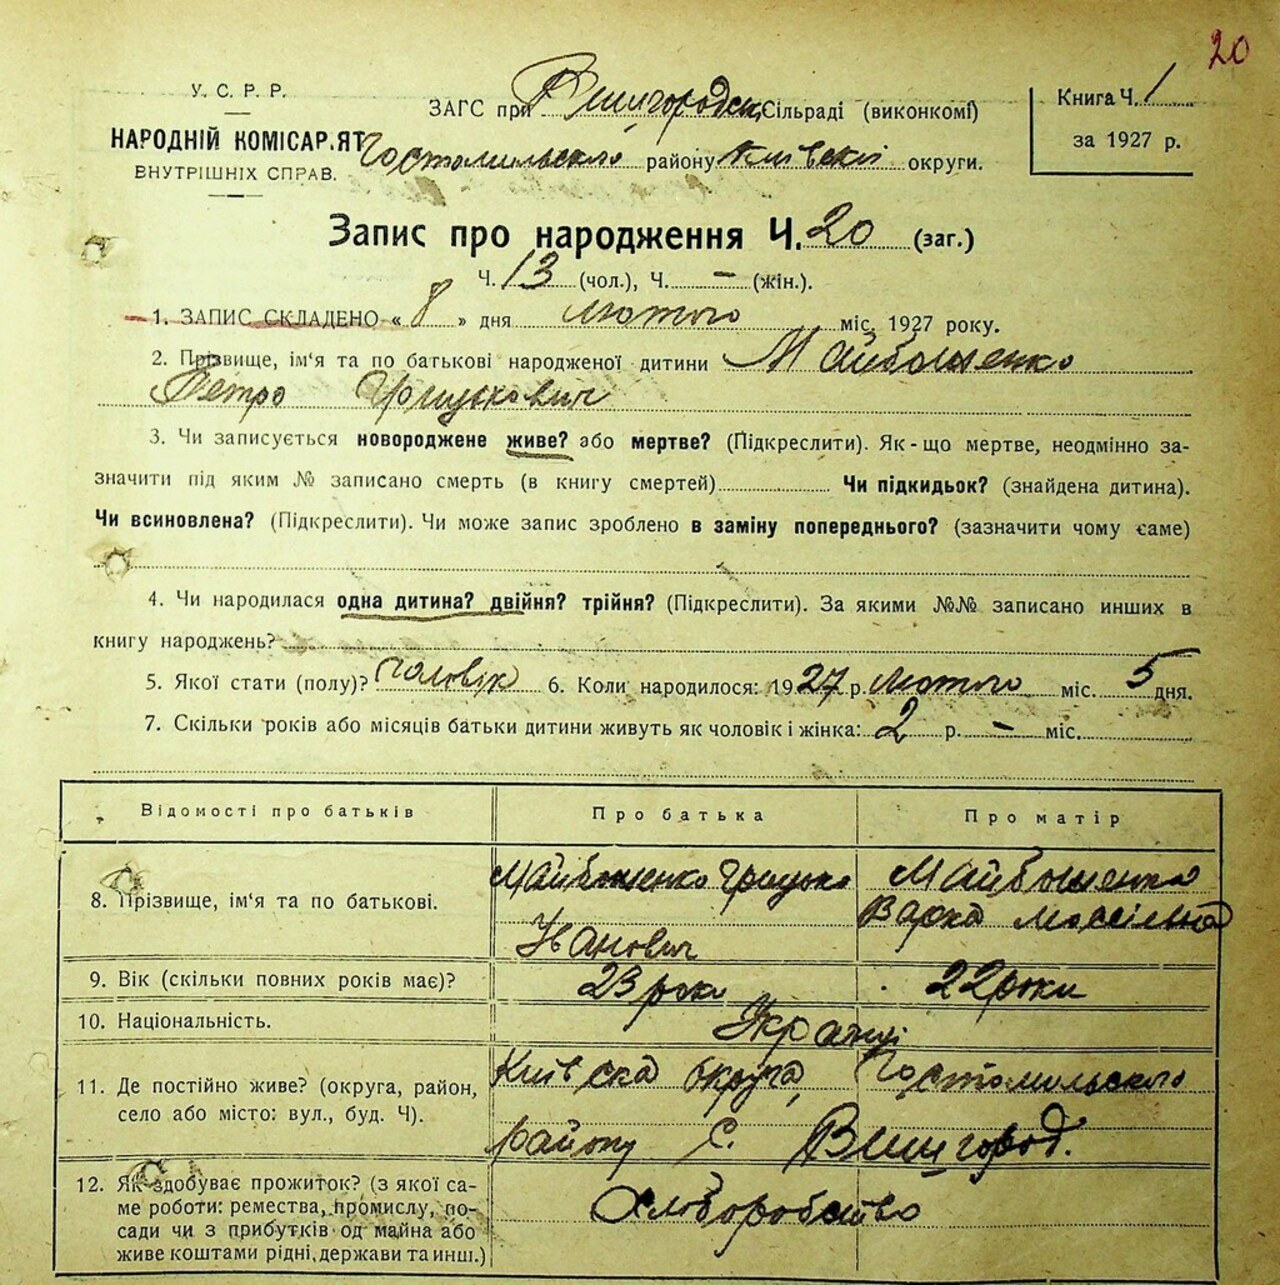 20
У. С. Р. Р.
НАРОДНІЙ КОМІСАР.ЯТ
ВНУТРІШНІХ СПРАВ.
ЗАГС при Вишгородск Сільраді (виконкомі)
Гостомильского району Київскій округи.
Книга Ч. 1
за 1927 р.
Запис про народження Ч. 20 (заг.)
Ч. 13 (чол.), Ч. – (жін.).
1. ЗАПИС СКЛАДЕНО « 8 » дня лютого міс. 1927 року.
2. Прізвище, ім‘я та по батькові народженої дитини Майбоженко
Петро Грицькович
3. Чи записується новороджене живе? або мертве? (Підкреслити). Як-що мертве, неодмінно за-
значити під яким № записано смерть (в книгу смертей) Чи підкидьок? (знайдена дитина).
Чи всиновлена? (Підкреслити). Чи може запис зроблено в заміну попереднього? (зазначити чому саме)
4. Чи народилася одна дитина? двійня? трійня? (Підкреслити). За якими №№ записано инших в
книгу народжень?
5. Якої стати (полу)? Чоловік 6. Коли народилося: 1927 р. лютого міс. 5 дня.
7. Скільки років або місяців батьки дитини живуть як чоловік і жінка: 2 р. – міс.
Відомості про батьків Про батька Про матір
8. Прізвище, ім‘я та по батькові.
Майбоженко Грицько
Іванович
Майбоженко
Варка
9. Вік (скільки повних років має)? 23 роки 22 роки
10. Національність. Українці
11. Де постійно живе? (округа, район,
село або місто: вул., буд. Ч).
Київска округа, Гостомильского
району С. Вишгород.
12. Як здобуває прожиток? (з якої са-
ме роботи: ремества, промислу, по-
сади чи з прибутків од майна або
живе коштами рідні, держави та инш.)
Хлоборобство